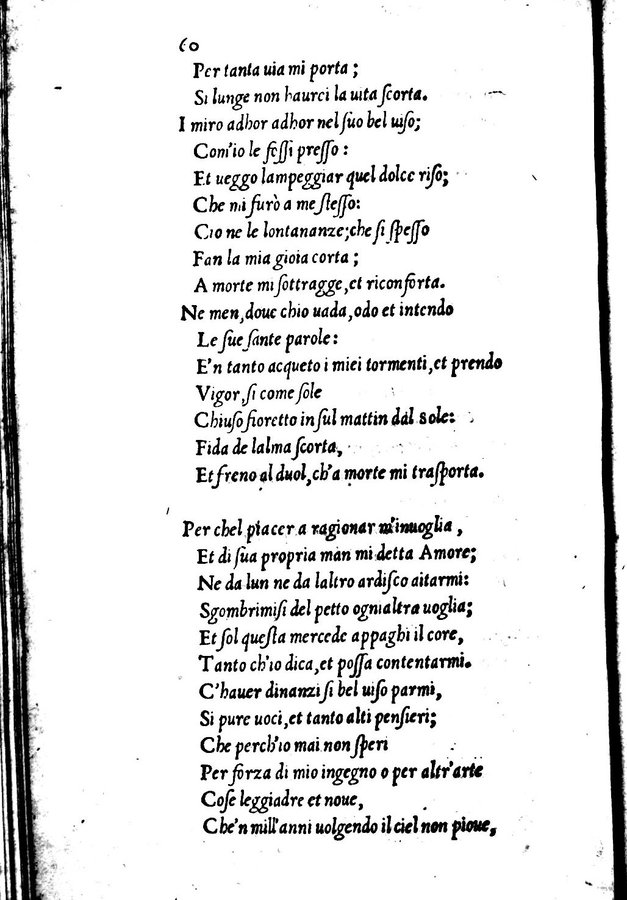 60
Per tanta uia mi porta;
Si lunge non haurei la uita ſcorta.
I miro adhor adhor nel ſuo bel uiſo;
Com'io le feſſi preſſo:
Et ueggo lampeggiar quel dolce riſo;
Che mi furò a me ſteſſo:
Cio ne le lontananze; che ſi ſpeſſo
Fan la mia gioia corta;
A morte mi ſottragge, et riconforta.
Ne men, doue chio uada, odo et intendo
Le ſue ſante parole:
E'n tanto acqueto i miei tormenti, et prendo
Vigor, ſi come ſole
Chiuſo fioretto in ſul mattin dal sole:
Fida de lalma ſcorta,
Et freno al duol, ch'a morte mi traſporta.
Per chel piacer a ragionar m'inuoglia,
Et di ſua propria man mi detta Amore;
Ne da lun ne da laltro ardiſco aitarmi:
Sgombrimiſi del petto ognialtra uoglia;
Et ſol queſta mercede appaghi il core,
Tanto ch'io dica, et poſſa contentarmi.
C'hauer dinanzi ſi bel uiſo parmi,
Si pure uoci, et tanto alti penſieri;
Che perch'io mai non ſperi
Per forza di mio ingegno o per altr'arte
Coſe leggiadre et noue,
Che'n mill'anni uolgendo il ciel non pioue,